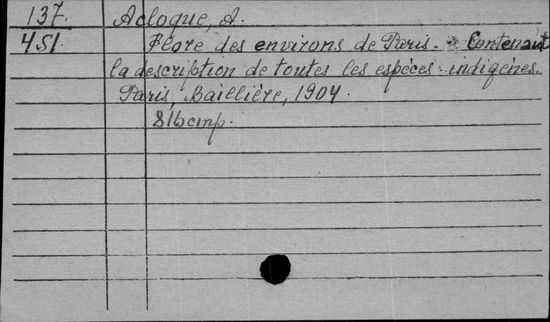 137. Acloque, A.
451. Flore des environs de Paris. - Contenant
la description de toutes les espèces indigènes.
Paris, Baillière, 1904.
816 стр.